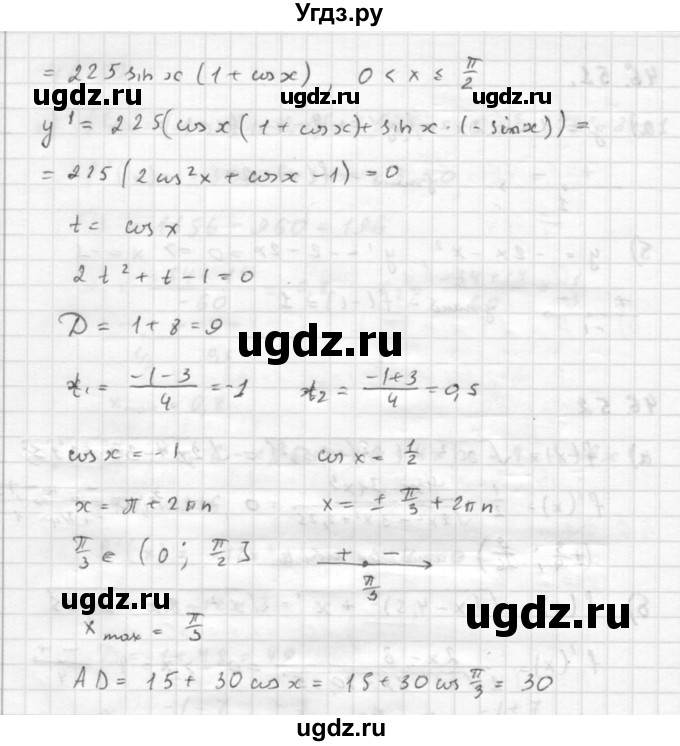 Угдз.ру
= 225 sin x (1 + cos x), 0 < x ≤ π/2
ugdz.ru ugdz.ru ugdz.ru
y' = 225(cos x (1 + cos x) + sin x · (- sin x)) =
= 225 (2 cos²x + cos x - 1) = 0
t = cos x
2 t² + t - 1 = 0
D = 1 + 8 = 9
ugdz.ru
t₁ = (-1-3)/4 = -1 t₂ = (-1+3)/4 = 0,5
cos x = -1 cos x = 1/2
x = π + 2πn x = ± π/3 + 2πn
π/3 ∈ (0; π/2] + -
π/3
ugdz.ru ugdz.ru
x max = π/3
AD = 15 + 30 cos x = 15 + 30 cos π/3 = 30
ugdz.ru ugdz.ru ugdz.ru
ugdz.ru